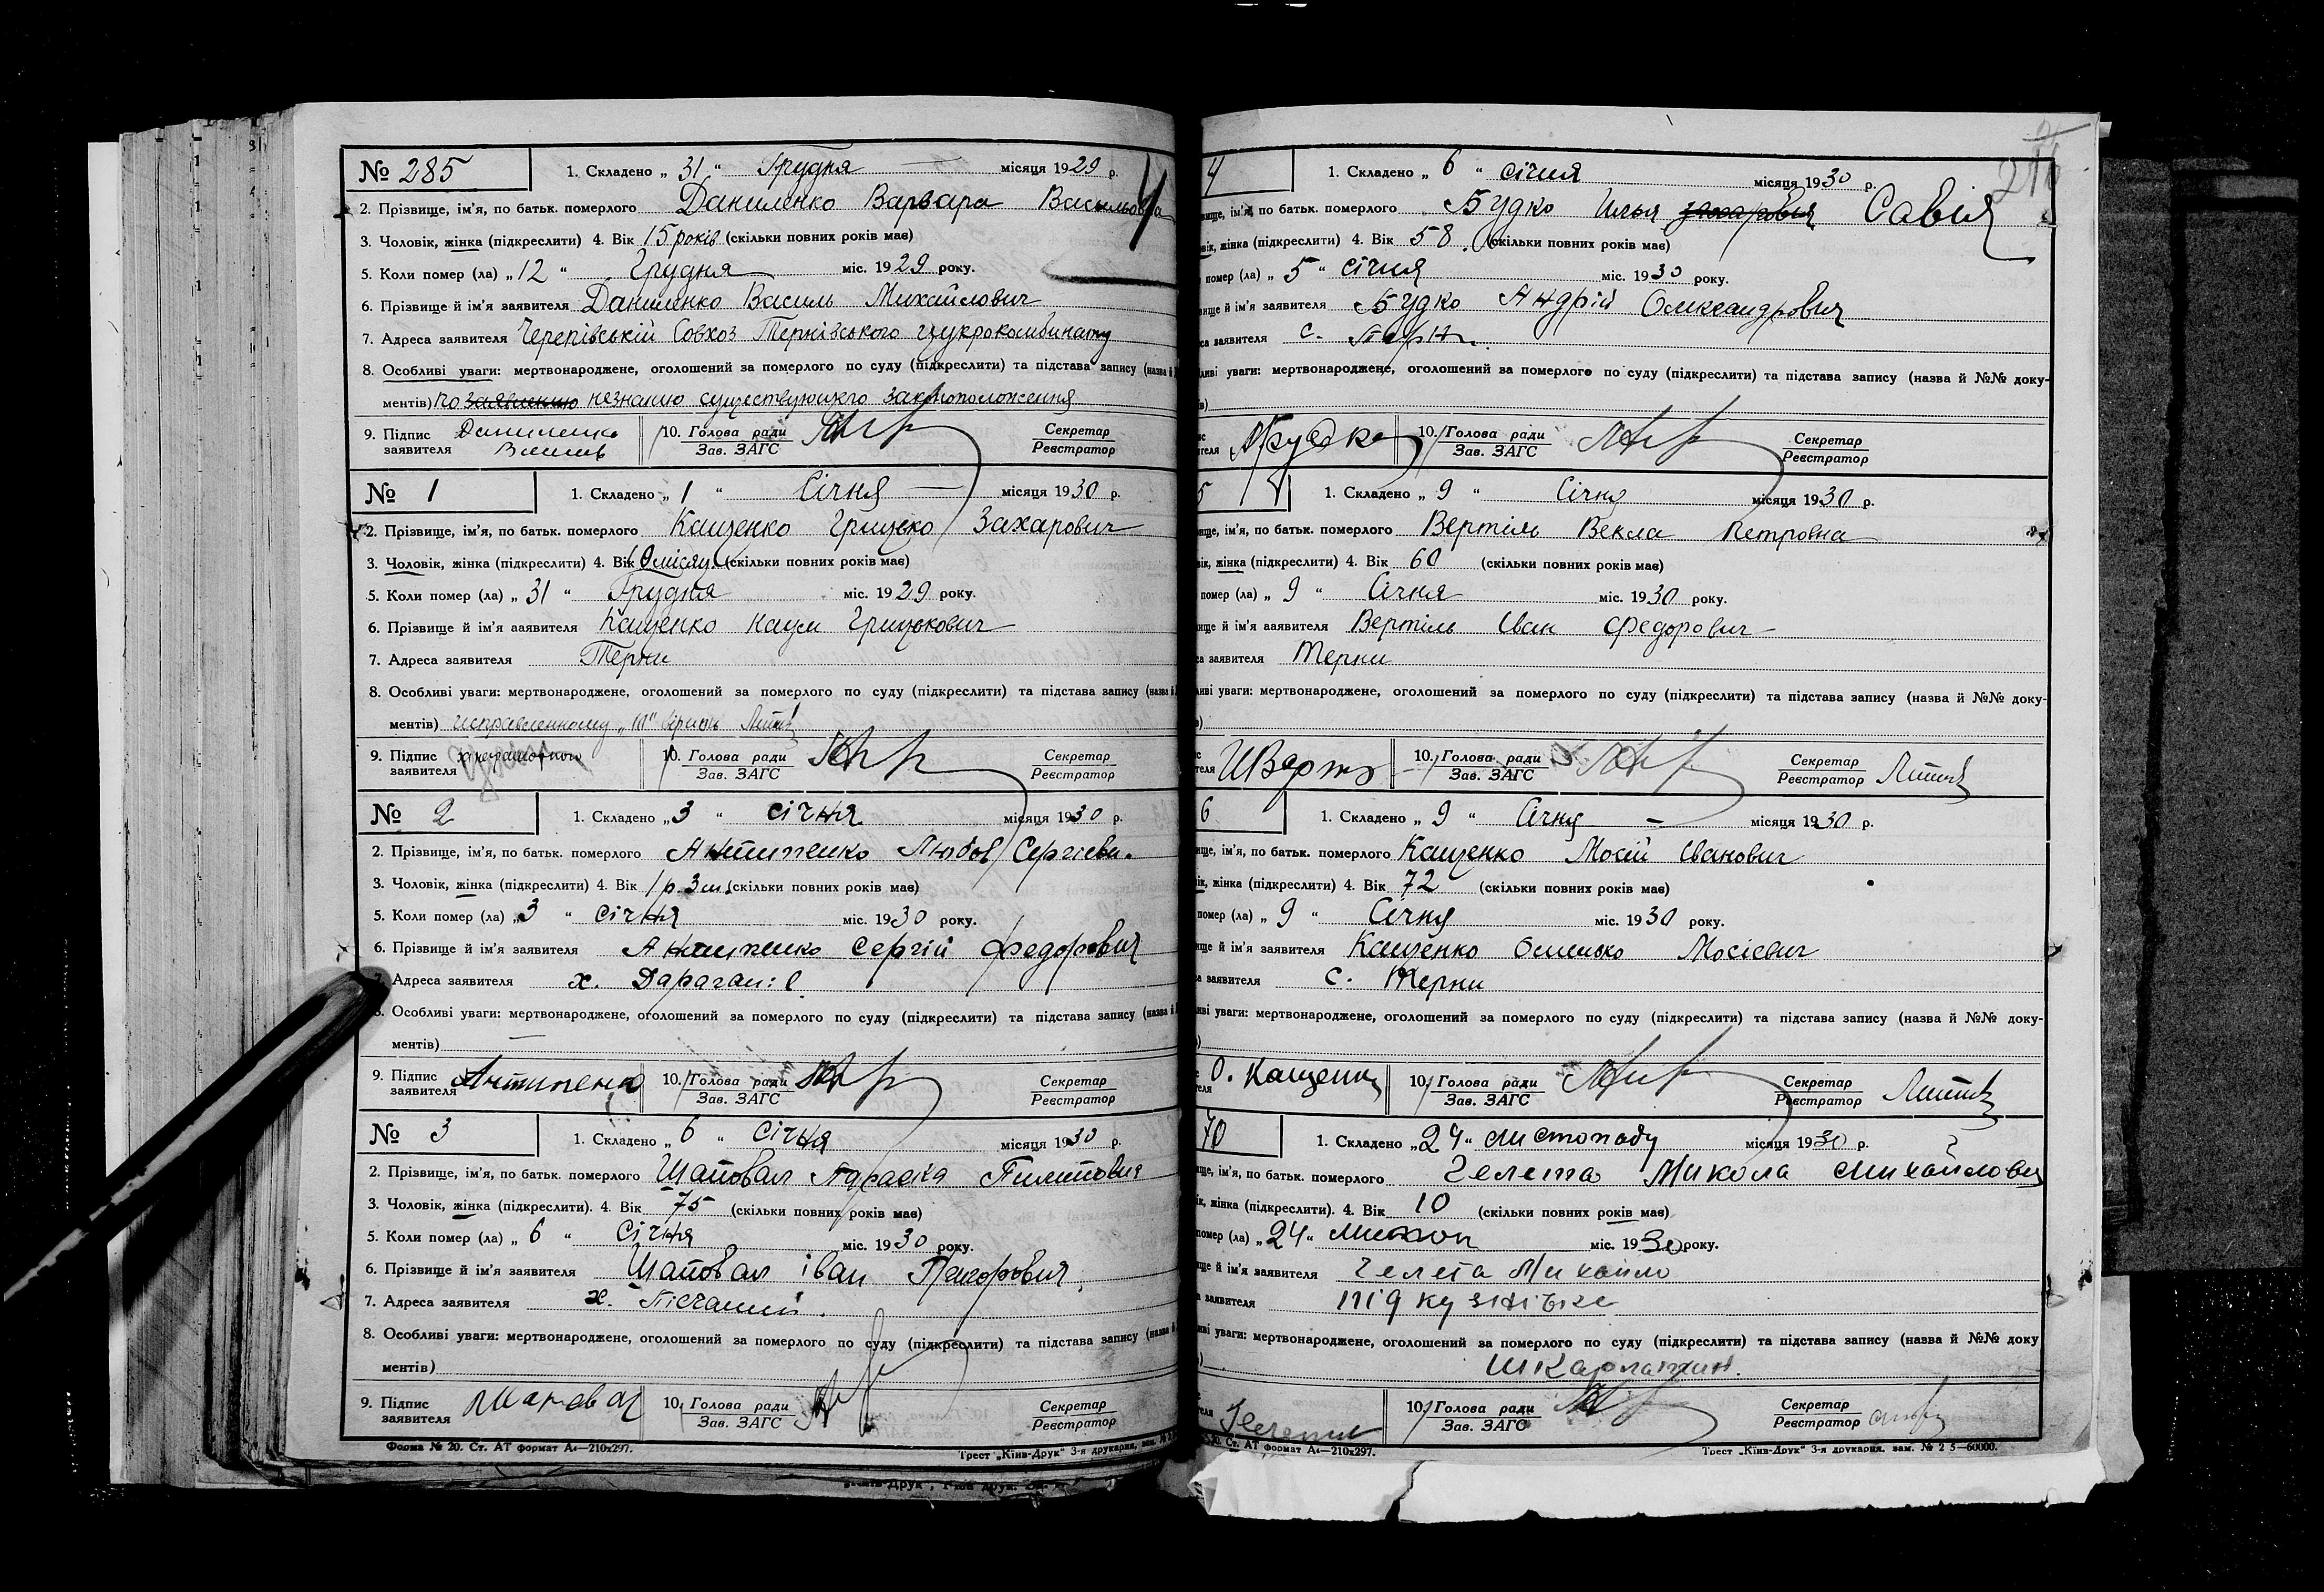 № 285
1. Складено „ 31 “ Грудня місяця 1929 р.
2. Прізвище, ім'я, по батьк. померлого Даниленко Варвара Васильовна
3. Чоловік, жінка (підкреслити) 4. Вік 15 років (скільки повних років має)
5. Коли помер (ла) „ 12 “ Грудня міс. 1929 року.
6. Прізвище й ім'я заявителя Даниленко Василь Михайлович
7. Адреса заявителя Черепівській Совхоз Тернівського цукрокомбинату
8. Особливі уваги: мертвонароджене, оголошений за померлого по суду (підкреслити) та підстава запису (назва й
ментів) по заявлению незнанию существующего законоположения
9. Підпис заявителя Даниленко Василь 10. Голова ради Зав. ЗАГС Секретар Реєстратор
№ 1
1. Складено „ 1 “ Січня місяця 1930 р.
2. Прізвище, ім'я, по батьк. померлого Кащенко Грицько Захарович
3. Чоловік, жінка (підкреслити) 4. Вік 10 місяц. (скільки повних років має)
5. Коли помер (ла) „ 31 “ Грудня міс. 1929 року.
6. Прізвище й ім'я заявителя Кащенко Наум Грицькович
7. Адреса заявителя Терни
8. Особливі уваги: мертвонароджене, оголошений за померлого по суду (підкреслити) та підстава запису (назва й
ментів) исправленному
9. Підпис заявителя 10. Голова ради Зав. ЗАГС Секретар Реєстратор
№ 2
1. Складено „ 3 “ січня місяця 1930 р.
2. Прізвище, ім'я, по батьк. померлого Антипенко Любов Сергієвн.
3. Чоловік, жінка (підкреслити) 4. Вік 1 р. 3 м. (скільки повних років має)
5. Коли помер (ла) „ 3 “ січня міс. 1930 року.
6. Прізвище й ім'я заявителя Антипенко Сергій Федорович
7. Адреса заявителя х. Дараган
8. Особливі уваги: мертвонароджене, оголошений за померлого по суду (підкреслити) та підстава запису (назва й
ментів)
9. Підпис заявителя Антипенко 10. Голова ради Зав. ЗАГС Секретар Реєстратор
№ 3
1. Складено „ 6 “ січня місяця 1930 р.
2. Прізвище, ім'я, по батьк. померлого Шаповал Параска
3. Чоловік, жінка (підкреслити). 4. Вік 75 (скільки повних років має)
5. Коли помер (ла) „ 6 “ Січня міс. 1930 року.
6. Прізвище й ім'я заявителя Шаповал іван
7. Адреса заявителя х. Пісчаний.
8. Особливі уваги: мертвонароджене, оголошений за померлого по суду (підкреслити) та підстава запису (назва й
ментів)
9. Підпис заявителя Шаповал 10. Голова ради Зав. ЗАГС Секретар Реєстратор
Форма № 20. Ст. АТ формат А4—210х297. Трест „Київ-Друк“ 3-я друкарня, зам.
4
1. Складено „ 6 “ січня місяця 1930 р.
ім'я, по батьк. померлого Будко Илья захарович Савія
жінка (підкреслити) 4. Вік 58 (скільки повних років має)
помер (ла) „ 5 “ січня міс. 1930 року.
й ім'я заявителя Будко Андрій Олександрович
заявителя с. Терни
уваги: мертвонароджене, оголошений за померлого по суду (підкреслити) та підстава запису (назва й №№ доку-
10. Голова ради Зав. ЗАГС Секретар Реєстратор
5
1. Складено „ 9 “ Січня місяця 1930 р.
ім'я, по батьк. померлого Вертіль Векла Петровна
жінка (підкреслити) 4. Вік 60 (скільки повних років має)
помер (ла) „ 9 “ Січня міс. 1930 року.
й ім'я заявителя Вертіль Іван Федорович
заявителя Терни
уваги: мертвонароджене, оголошений за померлого по суду (підкреслити) та підстава запису (назва й №№ доку-
10. Голова ради Зав. ЗАГС Секретар Реєстратор
6
1. Складено „ 9 “ Січня місяця 1930 р.
ім'я, по батьк. померлого Кащенко Мосій Іванович
жінка (підкреслити) 4. Вік 72 (скільки повних років має)
помер (ла) „ 9 “ Січня міс. 1930 року.
й ім'я заявителя Кащенко Омелько Мосієвич
заявителя с. Терни
уваги: мертвонароджене, оголошений за померлого по суду (підкреслити) та підстава запису (назва й №№ доку-
О. Кащенко 10. Голова ради Зав. ЗАГС Секретар Реєстратор
70
1. Складено „ 24 “ листопаду місяця 1930 р.
ім'я, по батьк. померлого Гелета Микола Михайлович
жінка (підкреслити). 4. Вік 10 (скільки повних років має)
помер (ла) „ 24 “ листоп міс. 1930 року.
й ім'я заявителя Гелета Михайло
заявителя
уваги: мертвонароджене, оголошений за померлого по суду (підкреслити) та підстава запису (назва й №№ доку
шкарлатин.
10. Голова ради Зав. ЗАГС Секретар Реєстратор
Ст. АТ формат А4—210х297. Трест „Київ-Друк“ 3-я друкарня. зам. № 2 5—60000.